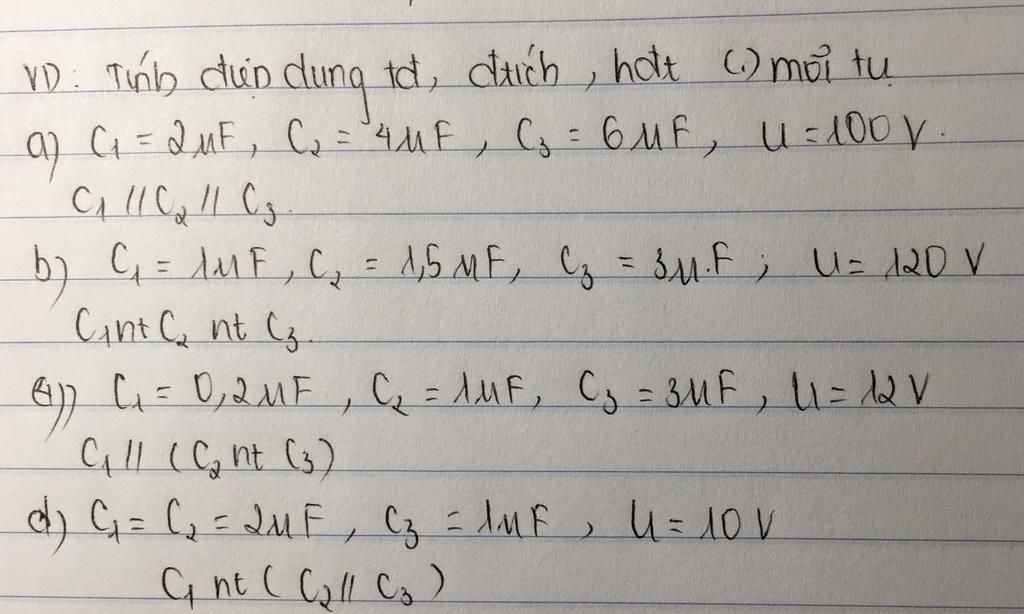 VD: Tính điện dung tđ, đtích, hđt (.) mỗi tụ
a) C₁ = 2μF, C₂ = 4μF, C₃ = 6μF, U = 100V.
C₁ // C₂ // C₃.
b) C₁ = 1μF, C₂ = 1,5μF, C₃ = 3μ.F; U = 120 V
C₁ nt C₂ nt C₃.
c)) C₁ = 0,2μF, C₂ = 1μF, C₃ = 3μF, U = 12V
C₁ // (C₂ nt C₃)
d) C₁ = C₂ = 2μF, C₃ = 1μF, U = 10V
C₁ nt (C₂ // C₃)